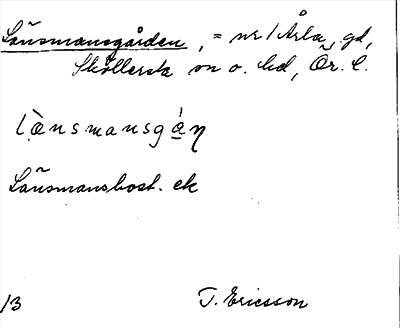 Länsmansgården, = nr 1 Årla, gd,
Sköllersta sn o. hd, Ör. l.
lä̀nsmansgá̱ɳ
Länsmansbost. ek
13 T. Ericsson